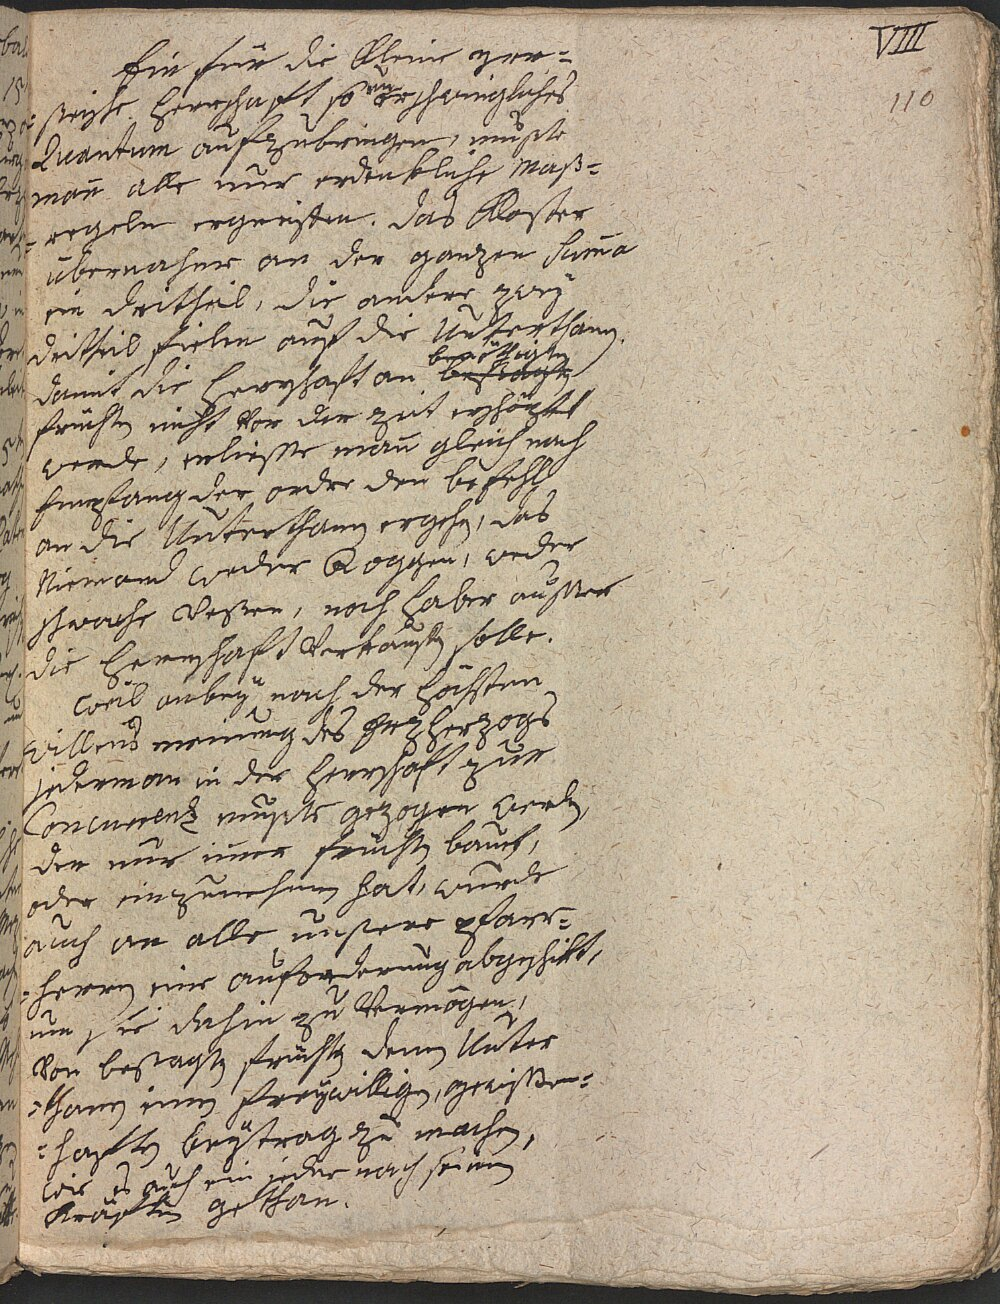 VIII
110
Ein für die Kleine ger=
=ste Herrschaft so unerschwingliches
Quantum aufzubringen, muste
man̄ alle nur erdenkliche Maß=
=regeln ergreiffen. Das Kloster
übernahme an der ganzen Sum̄a
ein dritheil, die andere zwey
dritheil fielen auf die Unterthann.
damit die Herrschaft an benöttigten besagten
früchten nicht vor der zeit erschöpfet
werde, erliesse man̄ gleich nach
Empfang der ordre den befehl
an die Unterthann ergehn, das
Niemand weder Roggen, weder
schwache Vesen, noch haber ausser
die Herrschaft Verkaufen solle.
Weil anbey nach der höchsten
Willens meinung des Erzherzogs
jederman in der Herrschaft zur
Concurrenz muste gezogen werden,
der nur imer früchten bauet,
oder einzunehmen hat, wurde
auch an alle unsere Pfarr=
=herrn eine aufforderung abgeschikt,
um sie dahin zu Vermögen,
Von besagten früchten denen Unter
=thanen einen freywilligen, gewissen=
=haften beytrag zu machen,
wie es auch ein jeder nach seinen
Kräften gethan.